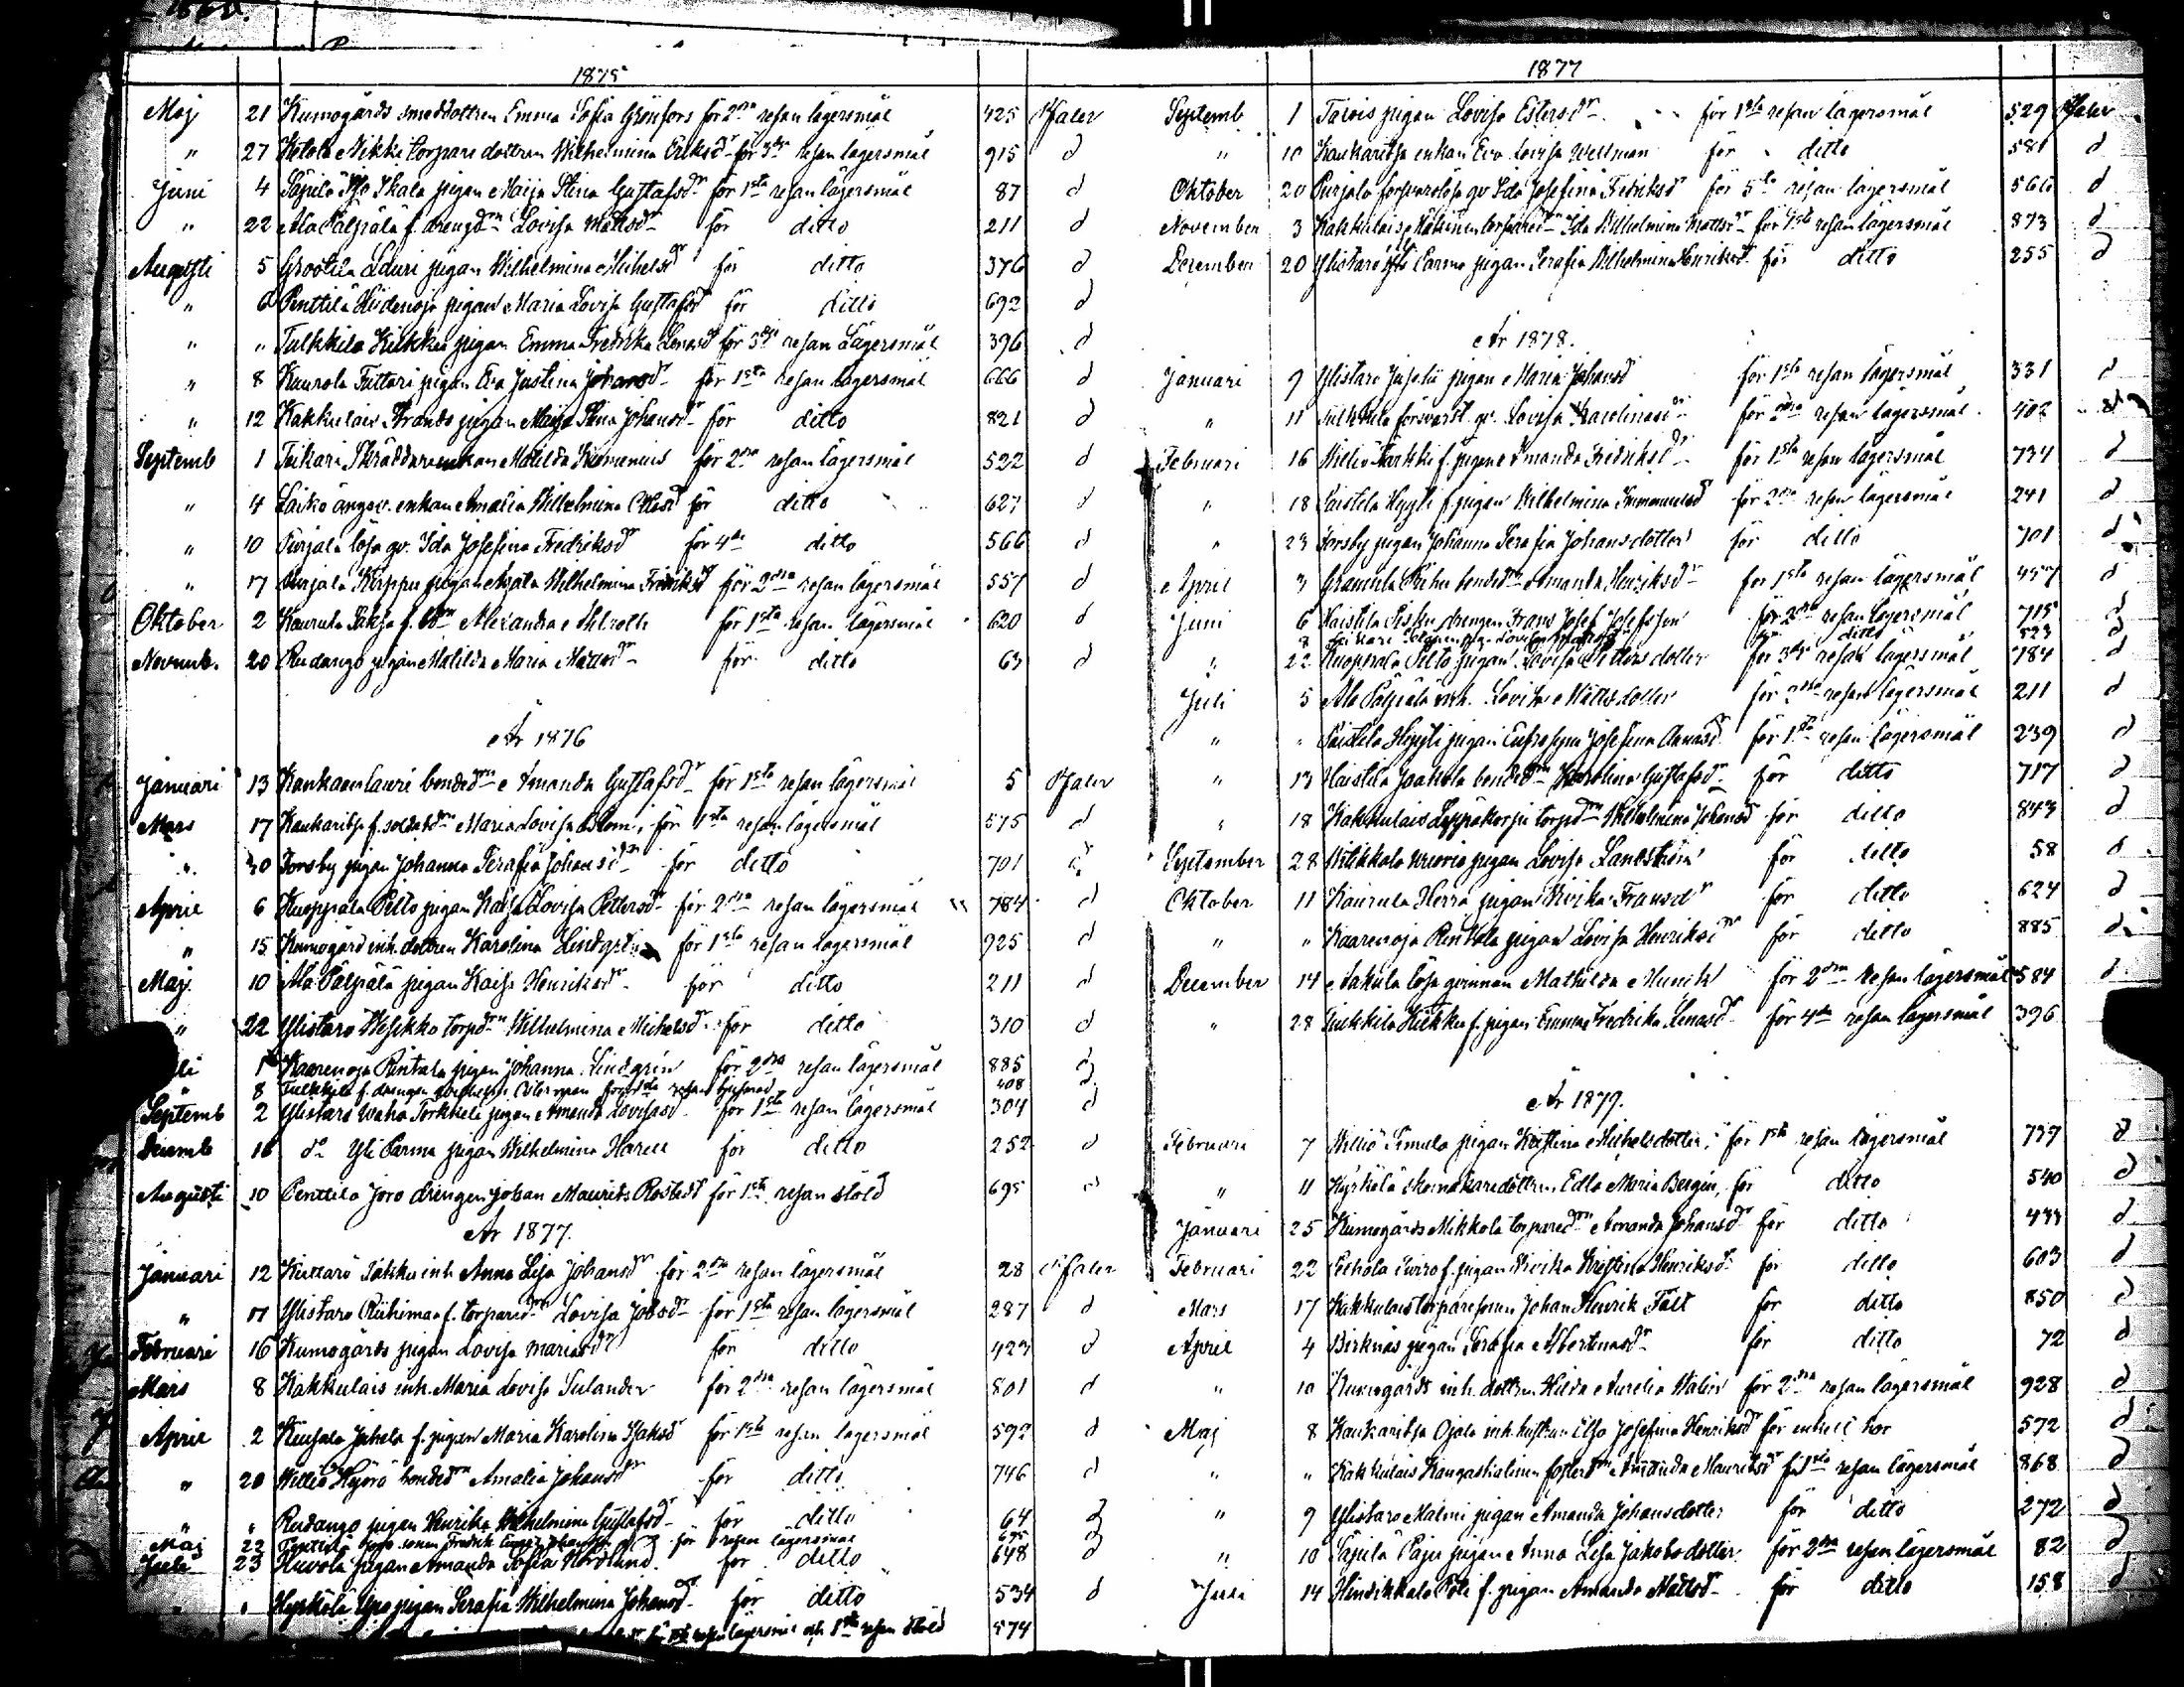 1860.
1875
Maj 21 Kumogårds smeddottren Emma Sofia Grönfors för 2dra resan lägersmål 425
" 27 Ketola Nikki torpare dottren Wilhelmina Eriksdr för 3dje resan lägersmål 915 d
Juni 4 Säpilä Skala pigan Maija Stina Gustafsdr för 1sta resan lägersmål 87 d
" 22 Ala Pälpälä f. drengdrn Lovisa Mattsdr för ditto 211 d
Augusti 5 Grootila Lauri pigan Wilhelmina Michelsdr för ditto 376 d
" 6 Penttilä Hiidenoja pigan Maria Lovisa Gustafsdr för ditto 692 d
" " Tulkkila Kiikku pigan Emma Fredrika Lenasdr för 3dje resan Lägersmål 396 d
" 8 Kaurola Tuttari pigan Eva Justina Johansdr för 1sta resan lägersmål 666 d
" 12 Kakkulais Strands pigan Maija Stina Johansdr för ditto 821 d
Septemb 1 Tuikari Skräddareenkan Matilda Kumenius för 2dra resan lägersmål 522 d
" 4 enkan Amalia Wilhelmina för ditto 627 d
" 10 Purjala lösa qv. Ida Josefina Fredriksdr för 4de ditto 566 d
" 17 Purjala Kirppu pigan Agata Wilhelmina Fredriksdr för 2dra resan lägersmål 557 d
Oktober 2 Kaurula f. Alexandra Ahlroth för 1sta resan lägersmål 620 d
Novemb. 20 Rudango pigan Matilda Maria Mattsdr för ditto 63 d
År 1876
Januari 13 Kankaan lauri bondedrn Amanda Gustafsdr för 1sta resan lägersmål 5
Mars 17 Kaukaritsa f. soldatdrn Maria Lovisa Blom, för 1sta resan lägersmål 575 d
" 30 Forsby pigan Johanna Serafia Johansdr för ditto 701 d
April 6 Kuoppala Pelto pigan Kaisa Lovisa Pettersdr för 2dra resan lägersmål 784 d
" 15 Kumogård inh. dottren Karolina för 1sta resan lägersmål 925 d
Maj 10 Ala Pälpälä pigan Kaisa Henriksdr för ditto 211 d
" 22 Ylistaro Wesikko torpdrn Wilhelmina Michelsdr för ditto 310 d
1 Kaarenoja Rintala pigan Johanna Lindgrén för 2dra resan lägersmål 885 d
8 Tulkkila f. drengen 408
Septemb 2 Ylistaro Waha Torkkeli pigan Amanda Lovisasdr för 1sta resan lägersmål 304 d
Decemb 16 do Yli Parma pigan Wilhelmina för ditto 252 d
Augusti 10 Penttilä Joro drengen Johan Maurits Rostedt för 1sta resan stöld 695
År 1877.
Januari 12 Kuttaro inh. Anna Lisa Johansdr för 2dra resan lägersmål 28
" 17 Ylistaro Riihimaa f. torparedrn Lovisa Jobsdr för 1sta resan lägersmål 287 d
Februari 16 Kumogårds pigan Lovisa Mariasdr för ditto 423 d
Mars 8 Kakkulais inh. Maria Lovisa Sulander för 2dra resan lägersmål 801 d
April 2 f. pigan Maria Karolina Isaksdr för 1sta resan lägersmål 592 d
" 20 Williö Hyörö bondedrn Amalia Johansdr för ditto 746 d
" " Rudango pigan Henrika Wilhelmina Gustafsdr för ditto 64 d
Maj 22 Penttilä Joro sonen Fredrik för resan lägersmål 695 d
Juli 23 Huvola pigan Amanda Sofia Nordlund för ditto 648 d
" " Hyrkölä pigan Serafia Wilhelmina Johansdr för ditto 534 d
för resan lägersmål och 1sta resan stöld 574
1877
Septemb 1 pigan Lovisa Estersdr för 1sta resan lägersmål 529
" 10 Kaukaritsa enkan Eva Lovisa Wellman för ditto 581 d
Oktober 20 Purjala försvarslösa qv Ida Josefina Fredriksdr för 5te resan lägersmål 566 d
November 3 Kakkulais torparedrn Ida Wilhelmina Mattsdr för 1sta resan lägersmål 873 d
December 20 Ylistaro Yli Parma pigan Serafia Wilhelmina Henriksdr för ditto 255 d
År 1878.
Januari 9 Ylistaro pigan Maria Johansdr för 1sta resan lägersmål 331 d
" 11 Tulkkila försvarsl. qv. Lovisa Karolinasdr för 2dra resan lägersmål 402 d
Februari 16 Williö f. pigan Amanda Fredriksdr för 1sta resan lägersmål 734 d
" 18 Paistila Hyyti f. pigan Wilhelmina Immanuelsdr för 2dra resan lägersmål 241 d
" 23 Forsby pigan Johanna Serafia Johansdotter för ditto 701 d
April 3 bondedrn Amanda Henriksdr för 1sta resan lägersmål 457 d
Juni 6 Haistila drengen Frans Josef Josefsson för 2dra resan lägersmål 715 d
8 ditto 523 d
" 22 Kuoppala Pelto pigan Lovisa Pettersdotter för 3dje resan lägersmål 784 d
Juli 5 Ala Pälpälä inh. Lovisa Mattsdotter för 2dra resan lägersmål 211 d
" " Paistila Hyyti pigan Eufrosyne Josefina Annasdr för 1sta resan lägersmål 239 d
" 13 Haistila Jaakola bondedrn Karolina Gustafsdr för ditto 717 d
" 18 Kakkulais Leppäkorpi torpdrn Wilhelmina Johansdr för ditto 843 d
September 28 pigan Lovisa Landström för ditto 58 d
Oktober 11 Kaurula Herra pigan Fransdr för ditto 624 d
" " Kaarenoja Rintala pigan Lovisa Henriksdr för ditto 885 d
December 14 lösa qvinnan Mathilda Munck för 2dra resan lägersmål 584 d
" 28 Tulkkila Kiikku f. pigan Emma Fredrika Lenasdr för 4de resan lägersmål 396
År 1879.
Februari 7 Williö Simula pigan Kristina Michelsdotter, för 1sta resan lägersmål 737 d
" 11 Hyrkölä skomakaredottren Edla Maria Bergén, för ditto 540 d
Januari 25 Kumogårds Mikkola torparedrn Amanda Johansdr för ditto 433 d
Februari 22 f. pigan Kristina Henriksdr för ditto 603 d
Mars 17 Kakkulais torparesonen Johan Henrik Fält för ditto 850 d
April 4 Birknäs pigan Serafia Albertinasdr för ditto 72 d
" 10 Kumogårds inh. dottren Hilda Aurelia Malin för 2dra resan lägersmål 928 d
Maj 8 Kaukaritsa Ojala inh. hustrun Elsa Josefina Henriksdr för enkelt hor 572 d
" " Kakkulais Kangaskalmen Amanda Mauritsdr för 1sta resan lägersmål 868 d
" 9 Ylistaro Malmi pigan Amanda Johansdotter för ditto 272 d
" 10 Säpilä Paju pigan Anna Lisa Jakobsdotter för 2dra resan lägersmål 82 d
Juni 14 Hinsikkala f. pigan Amanda Mattsdr för ditto 158 d